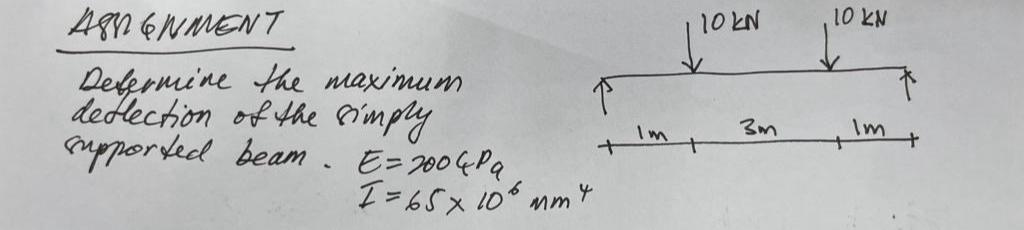 ASSIGNMENT
Determine the maximum
deflection of the simply
supported beam. E=200GPa
I=65×10⁶ mm⁴
10 kN 10 kN
1m 3m 1m